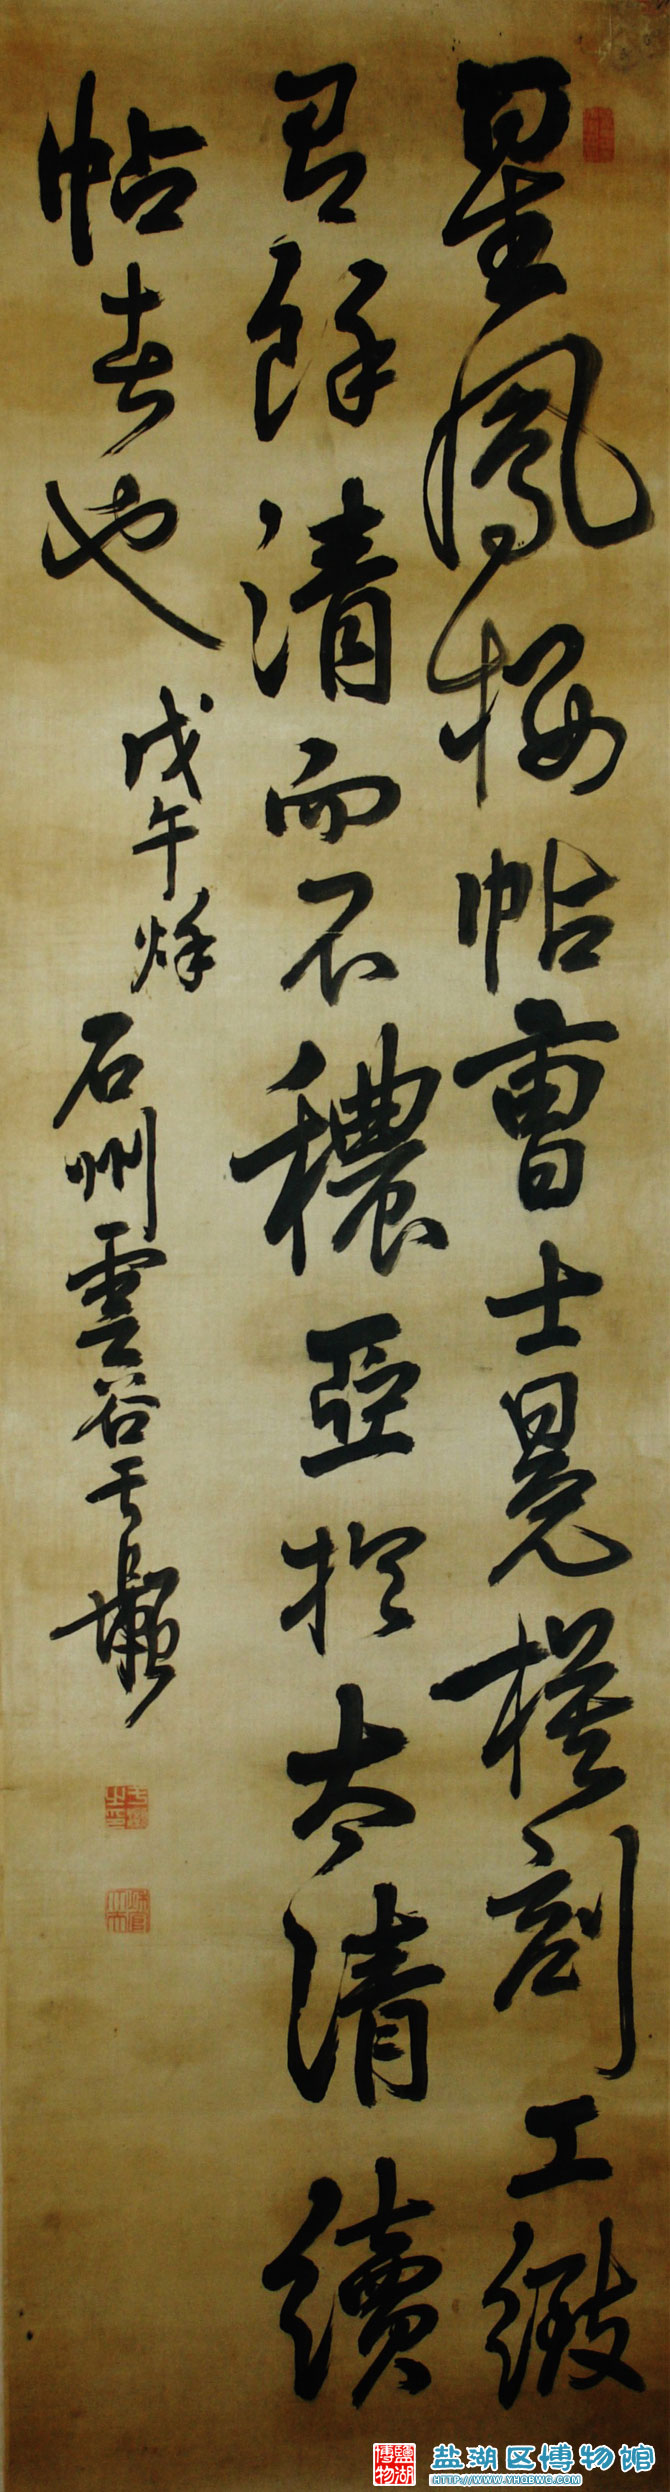 星鳳樓帖曹士冕模刻工緻
有餘清而不穠亞於太清續
帖者也
戊午秌 石州雲谷于
鹽湖博物
盐湖区博物馆
HTTP://WWW.YHQBWG.COM